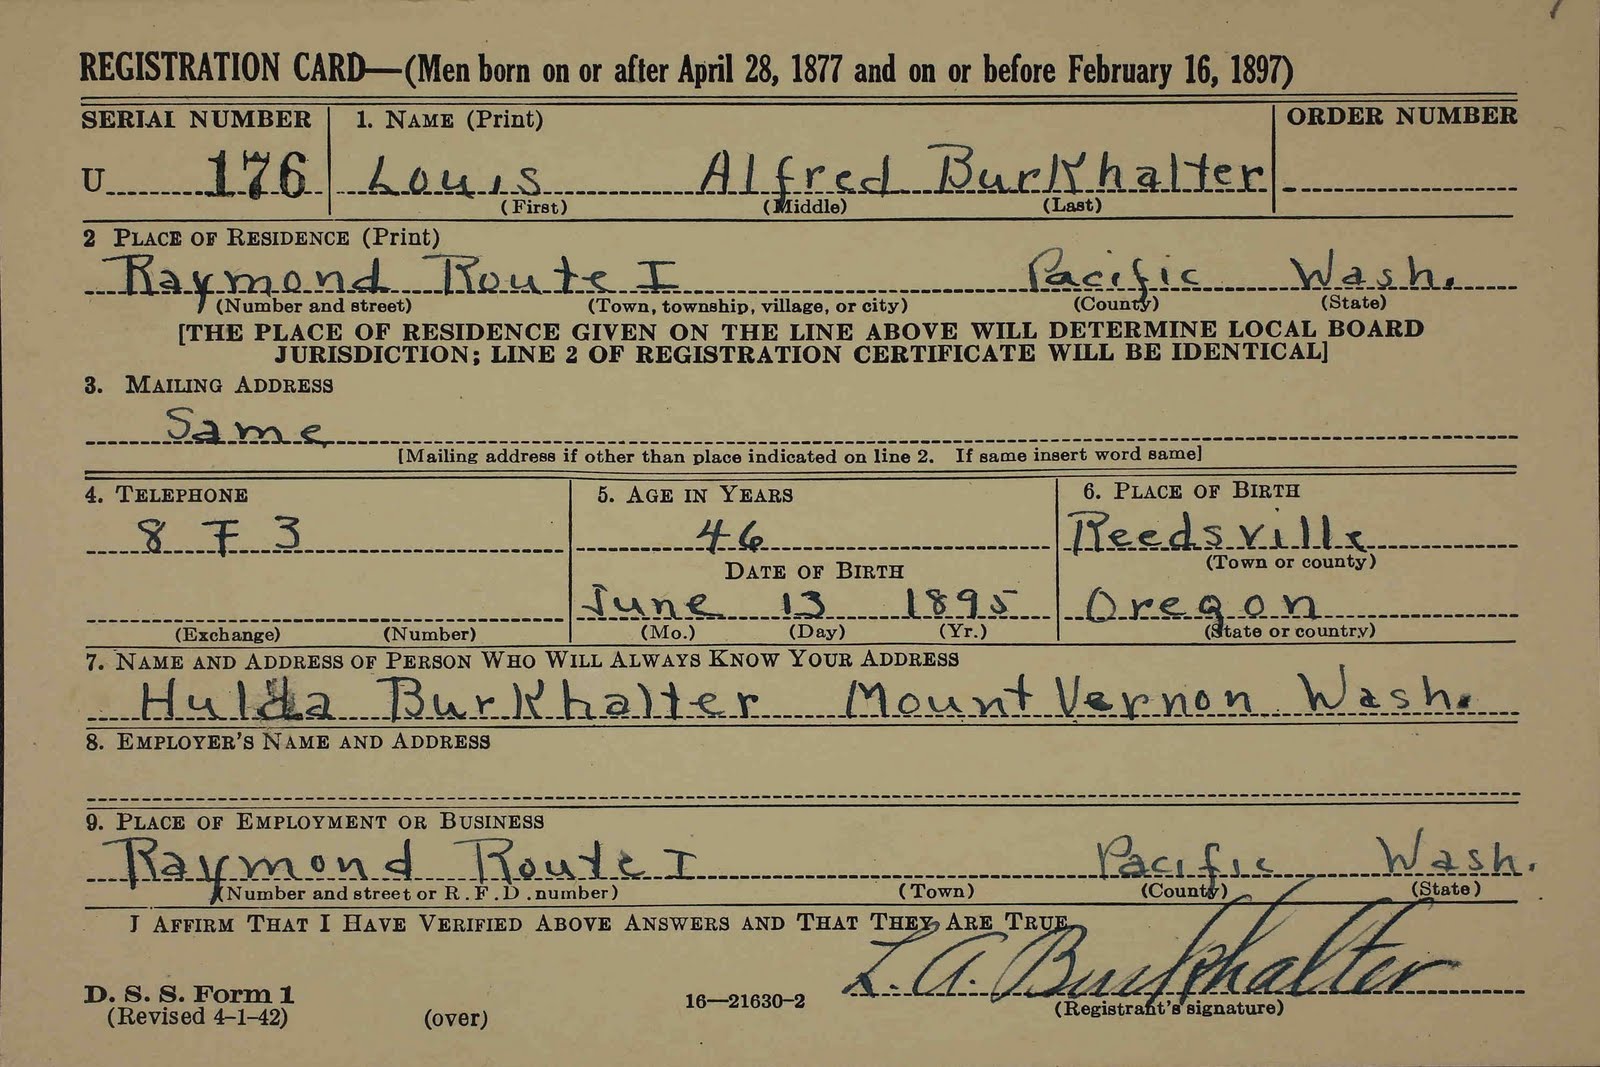 REGISTRATION CARD—(Men born on or after April 28, 1877 and on or before February 16, 1897)
SERIAL NUMBER 1. NAME (Print) ORDER NUMBER
U 176 Louis Alfred Burkhalter
(First) (Middle) (Last)
2 PLACE OF RESIDENCE (Print)
Raymond Route I Pacific Wash.
(Number and street) (Town, township, village, or city) (County) (State)
[THE PLACE OF RESIDENCE GIVEN ON THE LINE ABOVE WILL DETERMINE LOCAL BOARD
JURISDICTION; LINE 2 OF REGISTRATION CERTIFICATE WILL BE IDENTICAL]
3. MAILING ADDRESS
Same
[Mailing address if other than place indicated on line 2. If same insert word same]
4. TELEPHONE 5. AGE IN YEARS 6. PLACE OF BIRTH
8 F 3 46 Reedsville
DATE OF BIRTH (Town or county)
June 13 1895 Oregon
(Exchange) (Number) (Mo.) (Day) (Yr.) (State or country)
7. NAME AND ADDRESS OF PERSON WHO WILL ALWAYS KNOW YOUR ADDRESS
Hulda Burkhalter Mount Vernon Wash.
8. EMPLOYER'S NAME AND ADDRESS
9. PLACE OF EMPLOYMENT OR BUSINESS
Raymond Route I Pacific Wash.
(Number and street or R.F.D. number) (Town) (County) (State)
I AFFIRM THAT I HAVE VERIFIED ABOVE ANSWERS AND THAT THEY ARE TRUE.
L. A. Burkhalter
D. S. S. Form 1
(Revised 4-1-42) (over) 16—21630-2 (Registrant's signature)